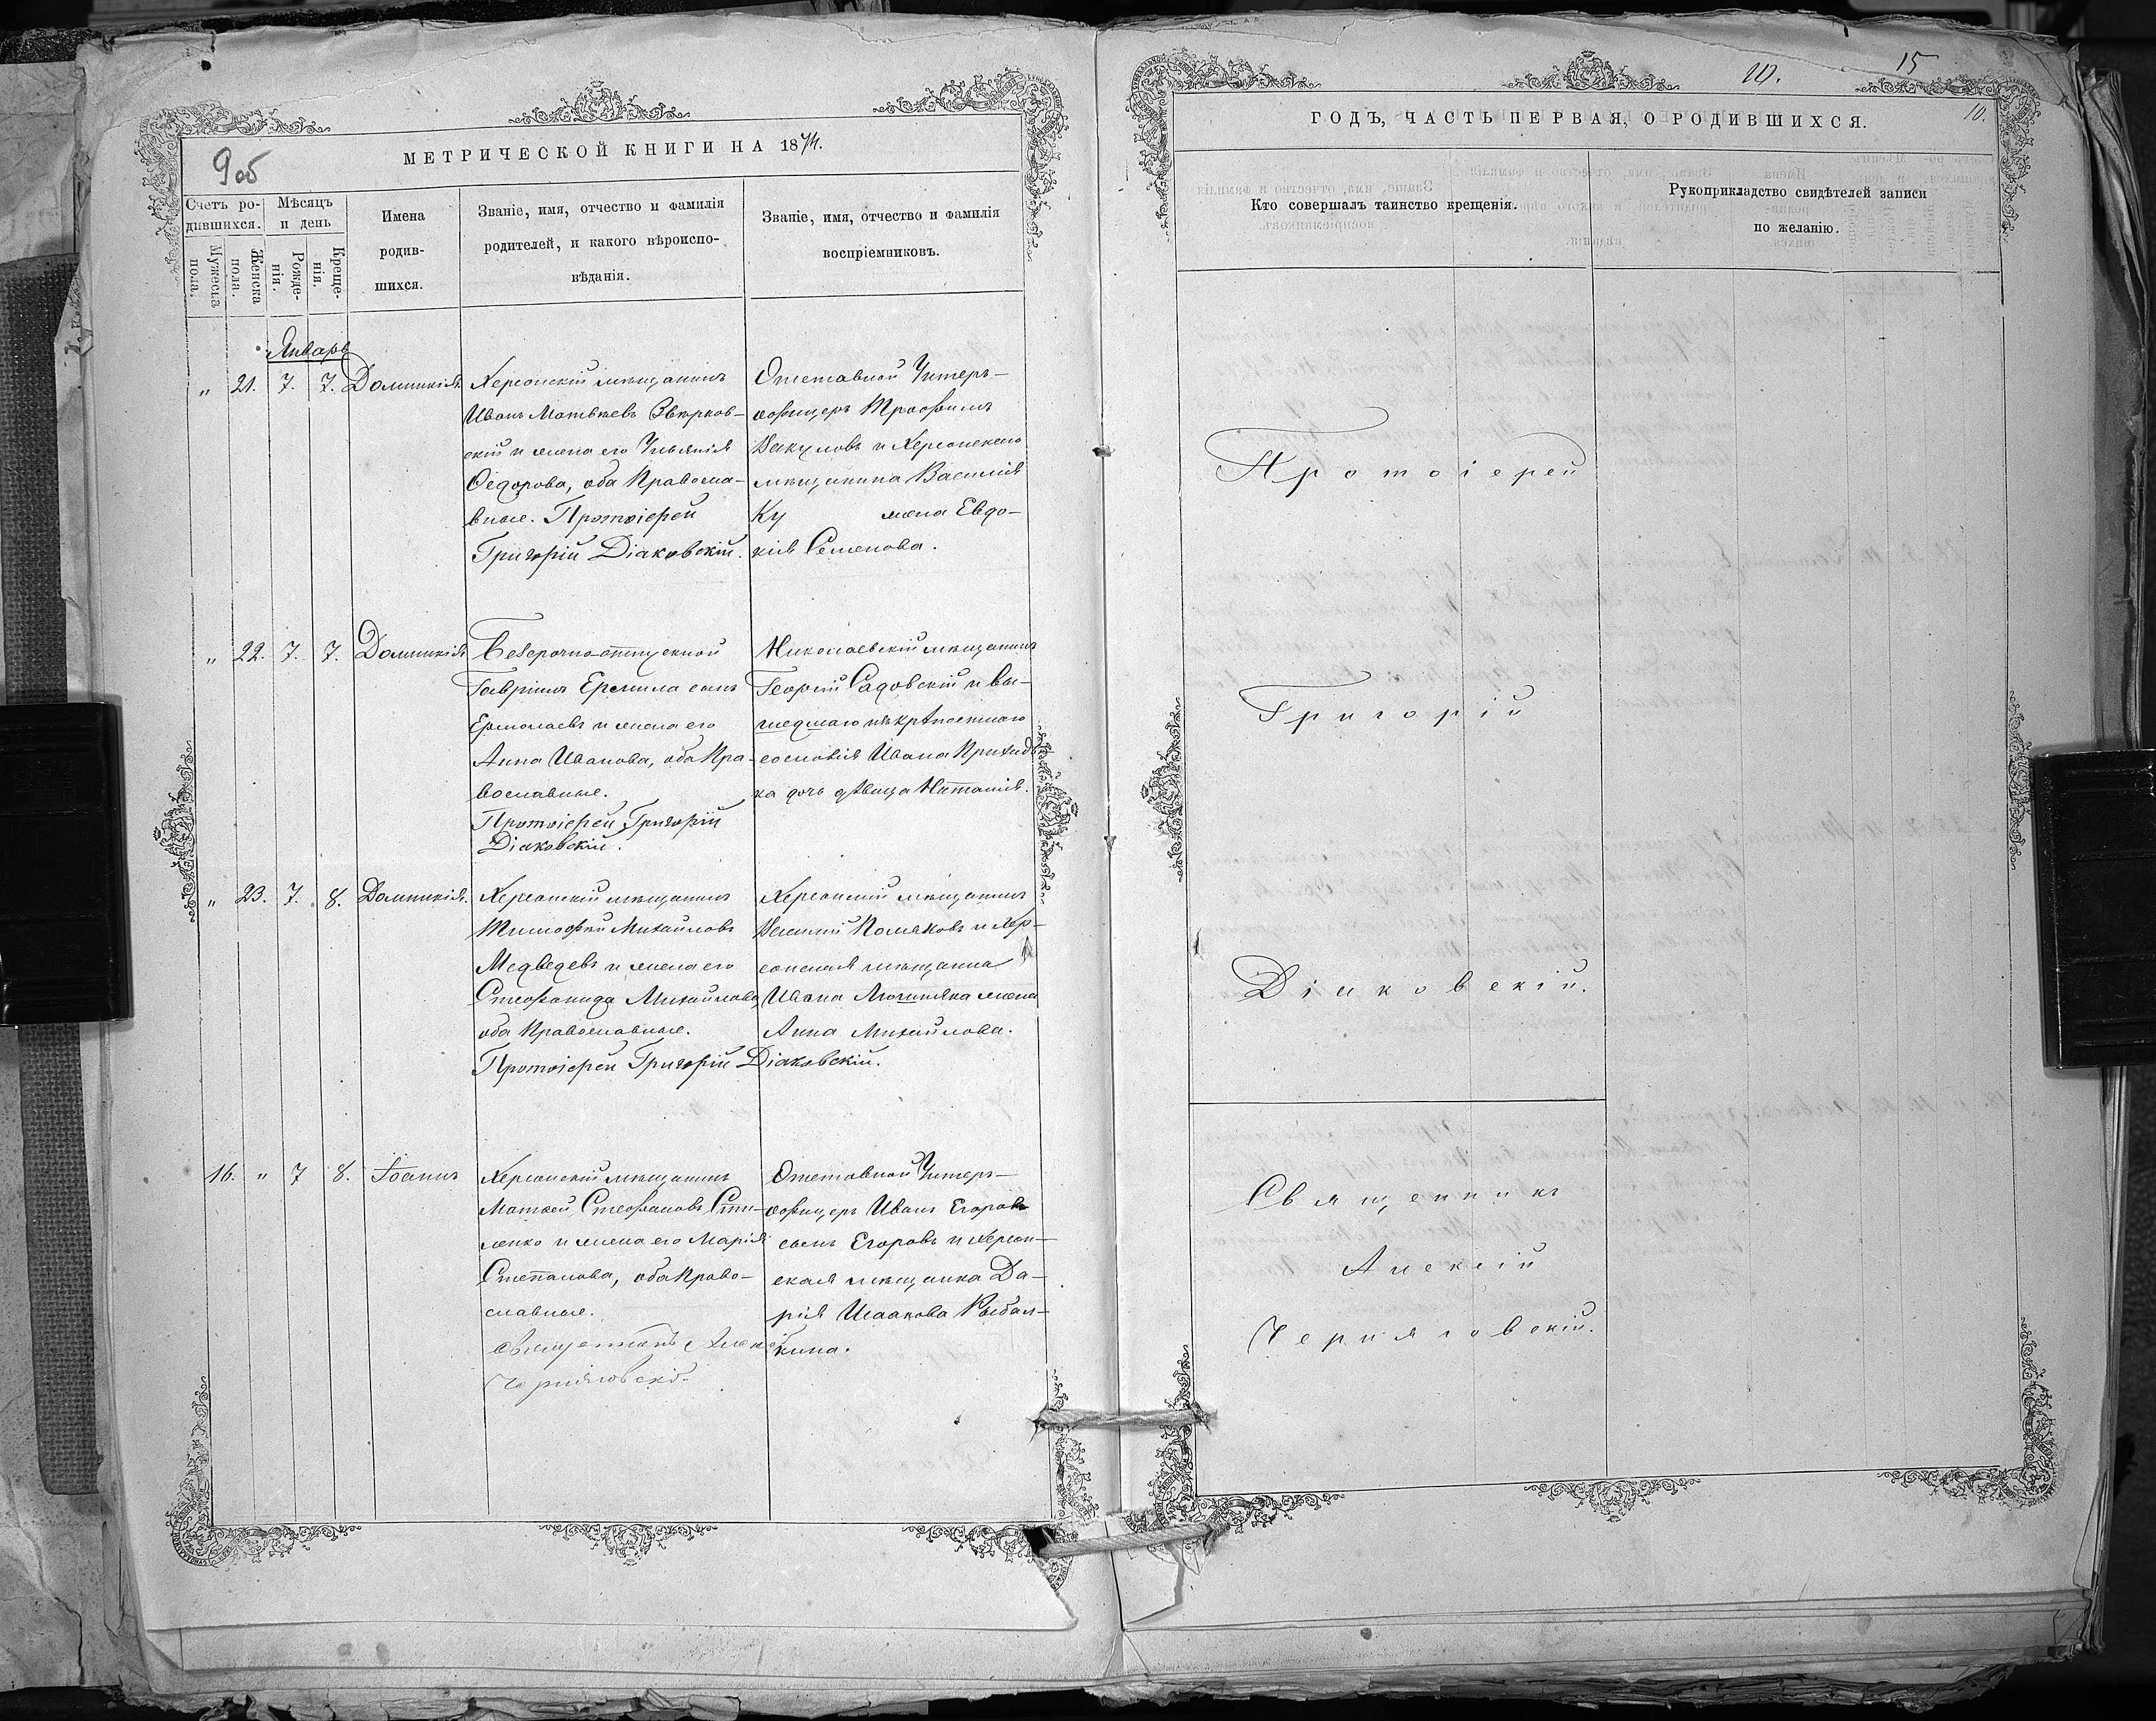 МЕТРИЧЕСКОЙ КНИГИ НА 1874.
9об
Счетъ ро-
дившихся.
Мужеска
пола.
Женска
пола.
Мѣсяцъ
и день
Рожде-
нія.
Креще-
нія.
Имена
родив-
шихся.
Званіе, имя, отчество и фамилія
родителей, и какого вѣроиспо-
вѣданія.
Званіе, имя, отчество и фамилія
воспріемниковъ.
Январь
„ 21. 7. 7. Домникія.
Херсонскій мѣщанинъ
Иванъ Матвѣевъ Звѣрков-
скій и жена его Ульянія
Ѳедорова, оба Правосла-
вные. Протоіерей
Григорій Діаковскій.
Отставной Унтеръ-
офицеръ Трофимъ
Вакуловъ и Херсонскаго
мѣщанина Василія
Ку жена Евдо-
кія Семенова.
„ 22. 7. 7. Домникія
Безсрочно-отпускной
Гавріилъ Ермила сынъ
Ермолаевъ и жена его
Анна Иванова, оба Пра-
вославные.
Протоіерей Григорій
Діаковскій.
Николаевскій мѣщанинъ
Георгій Садовскій и вы-
шедшаго изъ крѣпостнаго
сословія Ивана Приходь-
ка дочь дѣвица Наталія.
„ 23. 7. 8. Домникія.
Херсонскій мѣщанинъ
Тимофей Михайловъ
Медведевъ и жена его
Стефанида Михайлова,
оба Православные.
Протоіерей Григорій Діаковскій.
Херсонскій мѣщанинъ
Василій Поляковъ и Хер-
сонскаго мѣщанина
Ивана жена
Анна Михайлова.
16. „ 7 8. Іоаннъ
Херсонскій мѣщанинъ
Матвей Стефановъ
и жена его Марія
Степанова, оба Право-
славные.
Священникъ Алексій
Черняговскій
Отставной Унтеръ-
офицеръ Иванъ Егоровъ
сынъ Егоровъ и Херсон-
ская мѣщанка Да-
рія Исаакова Рыбал-
кина.
10. 15
10.
ГОДЪ, ЧАСТЬ ПЕРВАЯ, О РОДИВШИХСЯ.
Кто совершалъ таинство крещенія.
Рукоприкладство свидѣтелей записи
по желанію.
Протоіерей
Григорій
Діаковскій.
Священникъ
Алексій
Черняговскій.